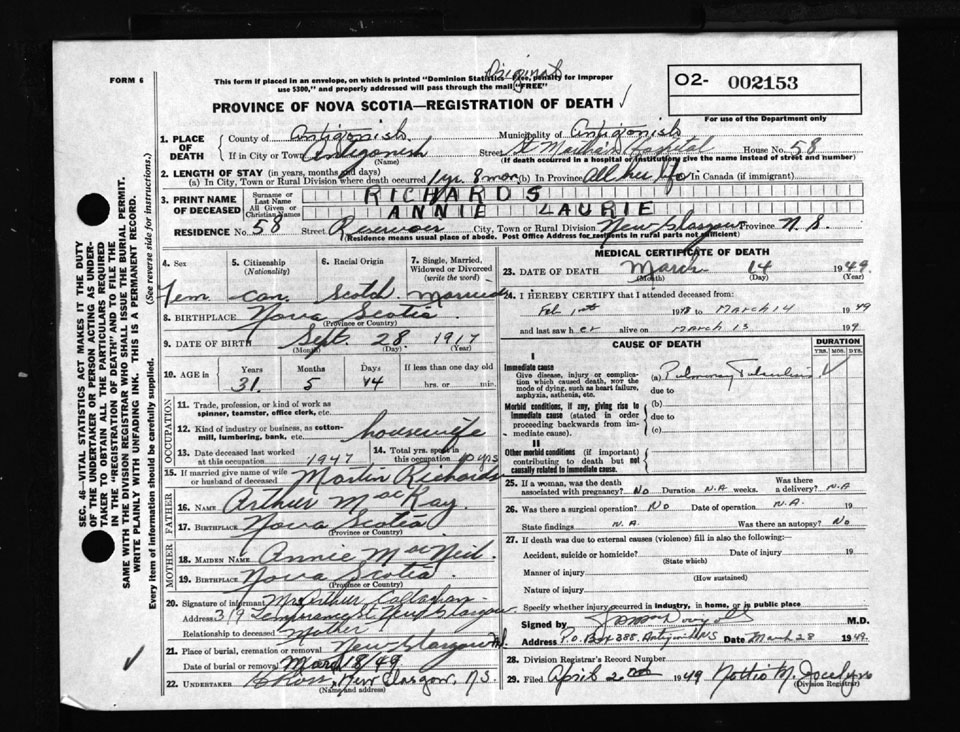 FORM 6
This form if placed in an envelope, on which is printed "Dominion Statistics—Free, penalty for improper
use $300," and properly addressed will pass through the mail "FREE"
PROVINCE OF NOVA SCOTIA—REGISTRATION OF DEATH
O2- 002153
For use of the Department only
1. PLACE OF DEATH
County of Antigonish Municipality of Antigonish
If in City or Town Antigonish (Name) Street St Martha's Hospital House No. 58
(If death occurred in a hospital or institution, give the name instead of street and number)
2. LENGTH OF STAY (in years, months and days)
(a) In City, Town or Rural Division where death occurred 1 yr. 8 mon (b) In Province All her life In Canada (if immigrant)
3. PRINT NAME OF DECEASED
Surname or Last Name RICHARDS
All Given or Christian Names ANNIE LAURIE
RESIDENCE No. 58 Street Reservoir City, Town or Rural Division New Glasgow Province N.S.
(Residence means usual place of abode. Post Office Address for residents in rural parts not sufficient)
4. Sex
5. Citizenship (Nationality)
6. Racial Origin
7. Single, Married, Widowed or Divorced (write the word)
Fem Can. Scotch Married
8. BIRTHPLACE Nova Scotia
(Province or Country)
9. DATE OF BIRTH Sept. 28 1917
(Month) (Day) (Year)
10. AGE in Years Months Days If less than one day old
31 5 14 hrs. or min.
OCCUPATION
11. Trade, profession, or kind of work as spinner, teamster, office clerk, etc.
12. Kind of industry or business, as cotton-mill, lumbering, bank, etc. housewife
13. Date deceased last worked at this occupation 1947
14. Total yrs. spent in this occupation 10 yrs
15. If married give name of wife or husband of deceased Martin Richards
FATHER
16. Name Arthur MacKay
17. Birthplace Nova Scotia
(Province or Country)
MOTHER
18. Maiden Name Annie MacNeil
19. Birthplace Nova Scotia
(Province or Country)
20. Signature of informant Mrs Arthur Callaghan
Address 319 Temperance St. New Glasgow
Relationship to deceased Mother
21. Place of burial, cremation or removal New Glasgow
Date of burial or removal Mar 18/49
22. UNDERTAKER Ross, New Glasgow, N.S.
(Name and address)
MEDICAL CERTIFICATE OF DEATH
23. DATE OF DEATH March 14 1949
(Month) (Day) (Year)
24. I HEREBY CERTIFY that I attended deceased from:
Feb 1st 19 to March 14 1949
and last saw her alive on March 13 19
CAUSE OF DEATH
DURATION
YRS. MOS. DYS.
I
Immediate cause
Give disease, injury or complication which caused death, NOT the mode of dying, such as heart failure, asphyxia, asthenia, etc.
(a) Pulmonary Tuberculosis
due to
Morbid conditions, if any, giving rise to immediate cause (stated in order proceeding backwards from immediate cause).
(b)
due to
(c)
II
Other morbid conditions (if important) contributing to death but not causally related to immediate cause.
25. If a woman, was the death associated with pregnancy? No Duration N.A. weeks. Was there a delivery? N.A
26. Was there a surgical operation? No Date of operation N.A. 19
State findings N.A. Was there an autopsy? No
27. If death was due to external causes (violence) fill in also the following:—
Accident, suicide or homicide? Date of injury 19
(State which)
Manner of injury
(How sustained)
Nature of injury
Specify whether injury occurred in industry, in home, or in public place
Signed by M.D.
Address P.O. Box 388, Antigonish NS Date March 28 1949.
28. Division Registrar's Record Number
29. Filed April 2nd 1949 Nottie M. Jocelyn
(Division Registrar)
SEC. 46—VITAL STATISTICS ACT MAKES IT THE DUTY
OF THE UNDERTAKER OR PERSON ACTING AS UNDER-
TAKER TO OBTAIN ALL THE PARTICULARS REQUIRED
IN THE "REGISTRATION OF DEATH" AND TO FILE THE
SAME WITH THE DIVISION REGISTRAR WHO SHALL ISSUE THE BURIAL PERMIT.
WRITE PLAINLY WITH UNFADING INK. THIS IS A PERMANENT RECORD.
Every item of information should be carefully supplied. (See reverse side for instructions.)